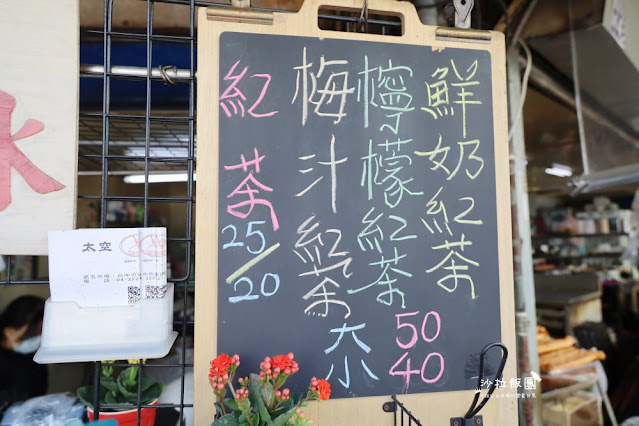 鮮奶紅茶
檸檬紅茶
梅汁紅茶
大 50
小 40
紅茶
25/20
冰
太空
沙拉飯團